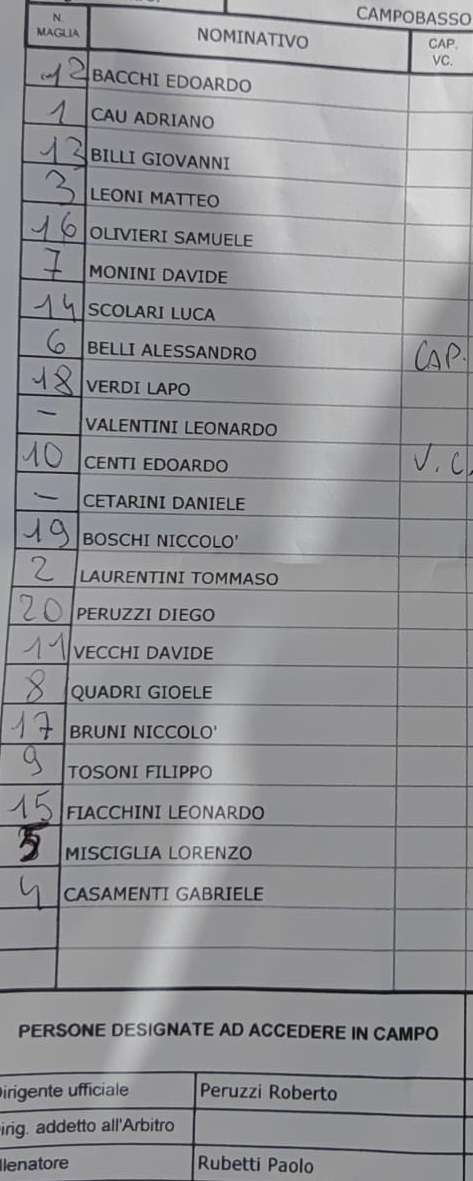 CAMPOBASSO
N. MAGLIA NOMINATIVO CAP. VC.
12 BACCHI EDOARDO
1 CAU ADRIANO
13 BILLI GIOVANNI
3 LEONI MATTEO
16 OLIVIERI SAMUELE
7 MONINI DAVIDE
14 SCOLARI LUCA
6 BELLI ALESSANDRO CAP.
18 VERDI LAPO
- VALENTINI LEONARDO
10 CENTI EDOARDO V.C.
- CETARINI DANIELE
19 BOSCHI NICCOLO'
2 LAURENTINI TOMMASO
20 PERUZZI DIEGO
11 VECCHI DAVIDE
8 QUADRI GIOELE
17 BRUNI NICCOLO'
9 TOSONI FILIPPO
15 FIACCHINI LEONARDO
5 MISCIGLIA LORENZO
4 CASAMENTI GABRIELE
PERSONE DESIGNATE AD ACCEDERE IN CAMPO
irigente ufficiale Peruzzi Roberto
irig. addetto all'Arbitro
llenatore Rubetti Paolo